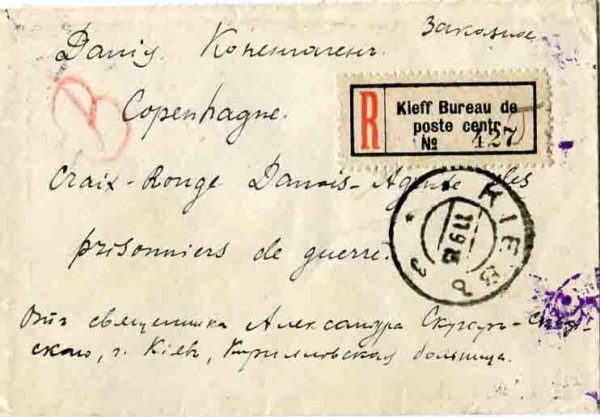 Заказное
Данія Копенгагенъ.
Copenhague.
R
Kieff Bureau de
poste centr.
№ 427
Croix-Rouge Danois-Agence des
prisonniers de guerre.
КІЕВЪ
3
Отъ священника Александра
скаго, г. Кіевъ, Кирилловская больница.